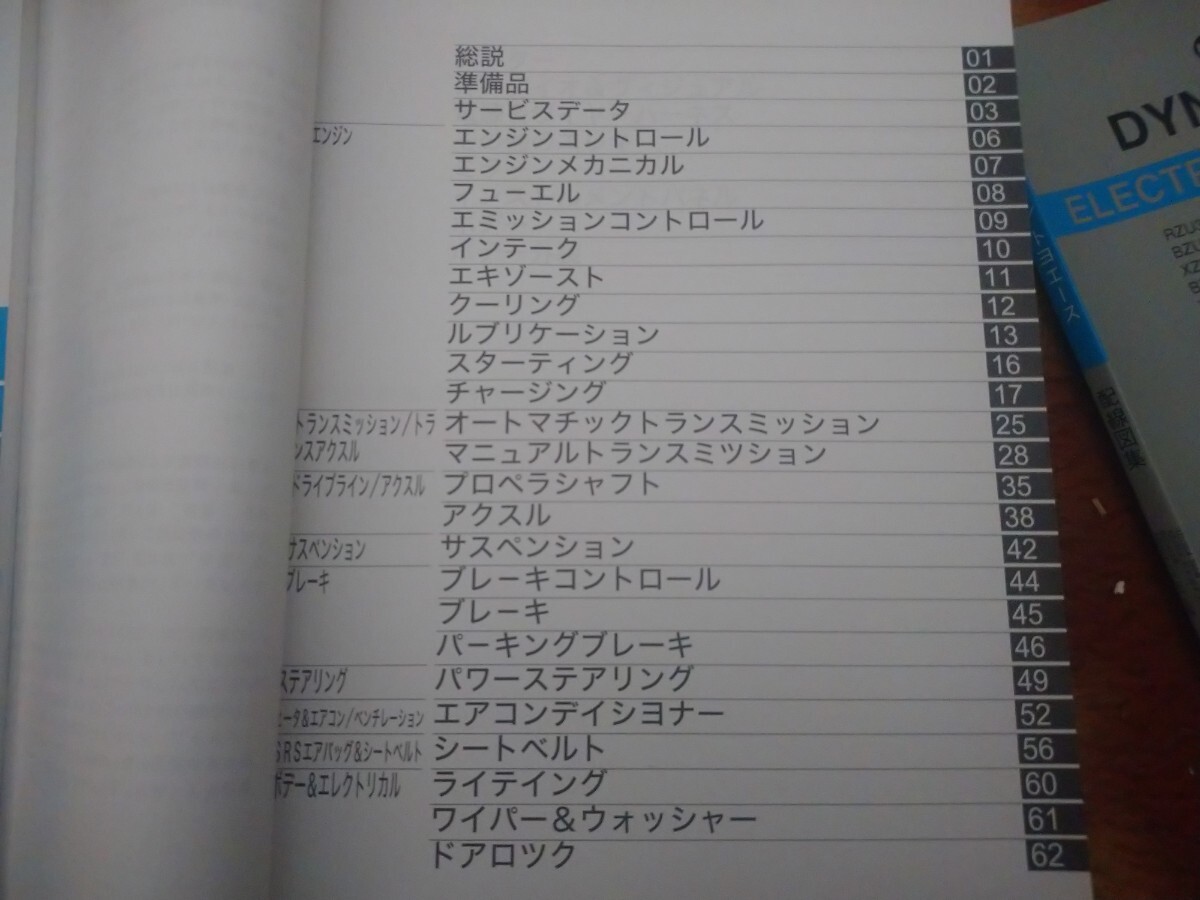 総説 01
準備品 02
サービスデータ 03
エンジン エンジンコントロール 06
エンジンメカニカル 07
フューエル 08
エミッションコントロール 09
インテーク 10
エキゾースト 11
クーリング 12
ルブリケーション 13
スターティング 16
チャージング 17
トランスミッション/トラ オートマチックトランスミッション 25
ンスアクスル マニュアルトランスミツション 28
ドライブライン/アクスル プロペラシャフト 35
アクスル 38
サスペンション サスペンション 42
ブレーキ ブレーキコントロール 44
ブレーキ 45
パーキングブレーキ 46
ステアリング パワーステアリング 49
ータ&エアコン/ベンチレーション エアコンデイシヨナー 52
SRSエアバッグ&シートベルト シートベルト 56
ボデー&エレクトリカル ライテイング 60
ワイパー&ウォッシャー 61
ドアロツク 62
DYN
ELECTR
トヨエース
配線図集